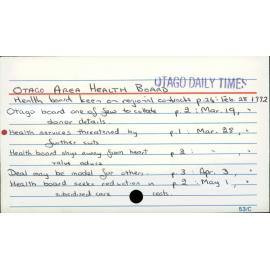 OTAGO DAILY TIMES
OTAGO AREA HEALTH BOARD
Health board keen on regional contracts p.26: Feb. 28 1992
Otago board one of few to collate p.2: Mar. 19, "
donor details
Health services threatened by p.1: Mar. 28, "
further cuts
Health board shys away from heart p.2: " , "
valve advice
Deal may be model for others. p.3: Apr. 3, "
Health board seeks reduction in p.2: May 1, "
subsidised care costs.
53/C